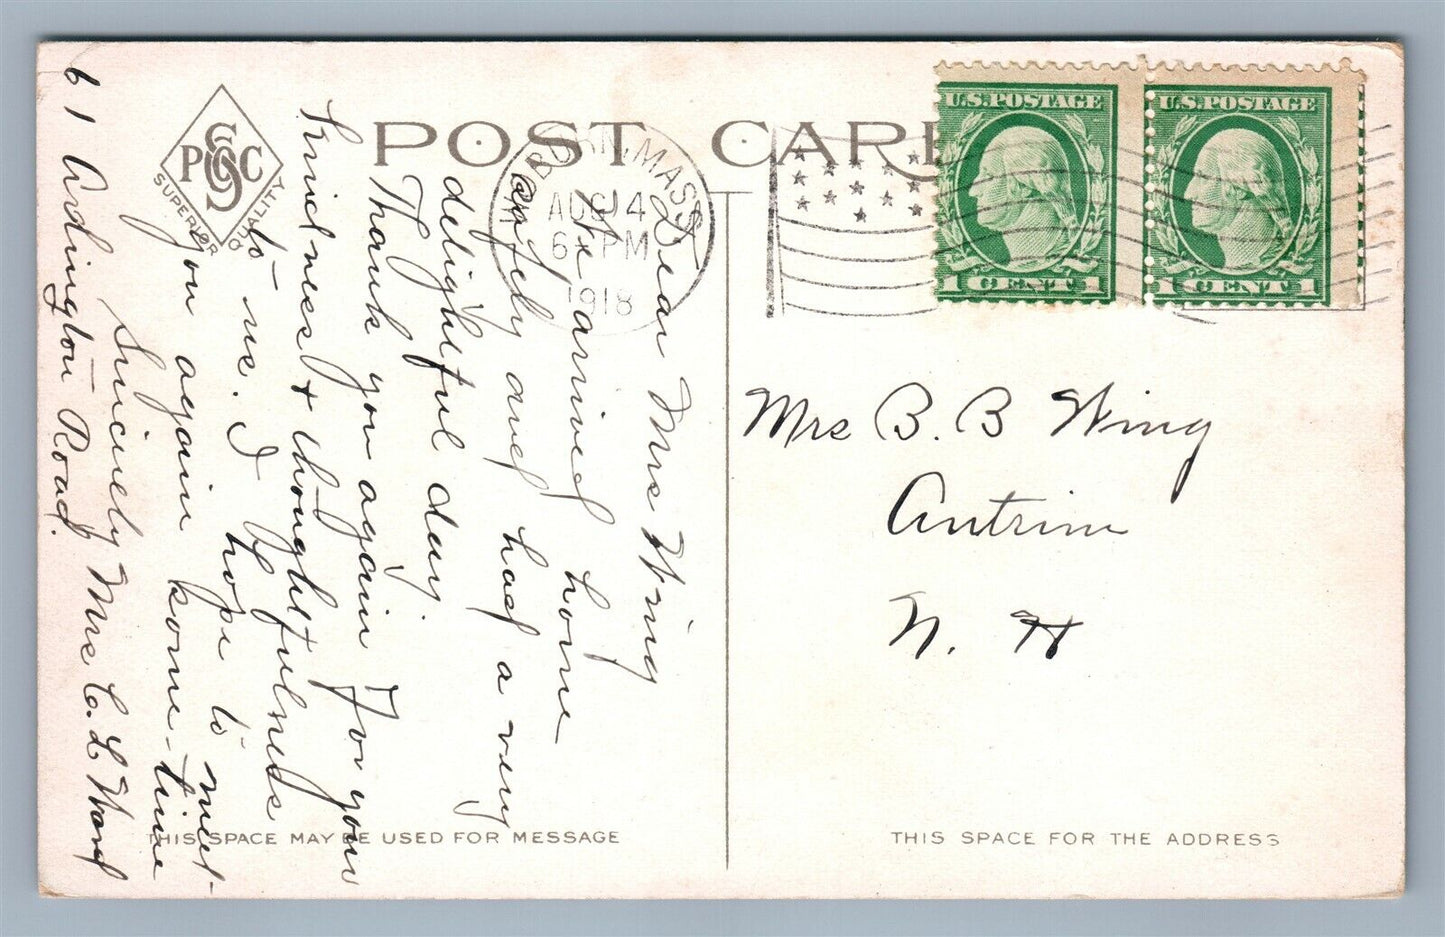 POST CARD
PSC
SUPERIOR QUALITY
BURN, MASS
AUG 14
6 PM
1918
U.S. POSTAGE
1 CENT 1
U.S. POSTAGE
1 CENT 1
Dear Mrs Wing
We arrived home
safely and had a very
delightful day.
Thank you again for your
kindness & thoughtfulness
to me. I hope to meet
you again some-time
Sincerely Mrs C. L Ward
61 Ardington Road.
Mrs B. B Wing
Antrim
N. H
THIS SPACE MAY BE USED FOR MESSAGE
THIS SPACE FOR THE ADDRESS